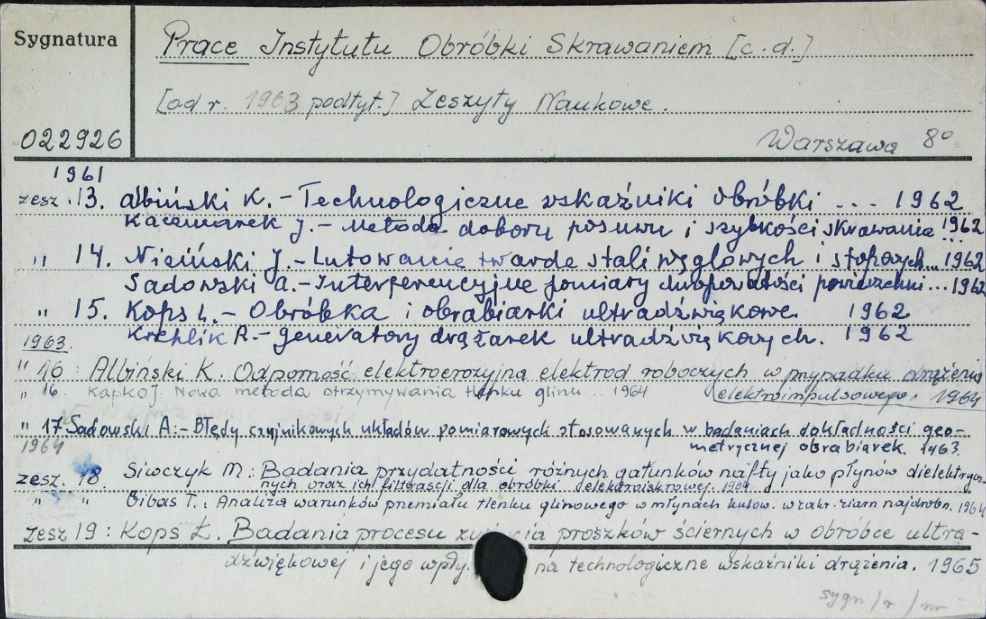 Sygnatura
Prace Instytutu Obróbki Skrawaniem [c.d.]
[od r. 1963 podtyt.] Zeszyty Naukowe.
022926
Warszawa 8°
1961
zesz. 13. Albiński K. - Technologiczne wskaźniki obróbki ... 1962
Kaczmarek J. - Metoda doboru posuwu i szybkości skrawania 1962
" 14. Niciński J. - Lutowanie twarde stali węglowych i stopowych... 1962
Sadowski A. - Interferencyjne pomiary chropowatości powierzchni ... 1962
" 15. Kops L. - Obróbka i obrabiarki ultradźwiękowe 1962
Krehlik A. - Generatory drążarek ultradźwiękowych. 1962
1963.
" 16 : Albiński K. Odporność elektroerozyjna elektrod roboczych w przypadku drążenia
elektroimpulsowego. 1964
" 16. Kapko J. Nowa metoda otrzymywania tlenku glinu .. 1964
" 17 Sadowski A: - Błędy czujnikowych układów pomiarowych stosowanych w badaniach dokładności geo-
metrycznej obrabiarek. 1963.
1964
zesz. 18. Siwczyk M: Badania przydatności różnych gatunków nafty jako płynów dielektrycz-
nych oraz ich filtracji dla obróbki elektroiskrowej. 1964
" " Bibas T.: Analiza warunków przemiału tlenku glinowego w młynach kulow. w zakr. ziarn najdrobn. 1964
Zesz 19 : Kops L. Badania procesu proszków ściernych w obróbce ultra-
dźwiękowej i jego na technologiczne wskaźniki drążenia. 1965
sygn / r / nr